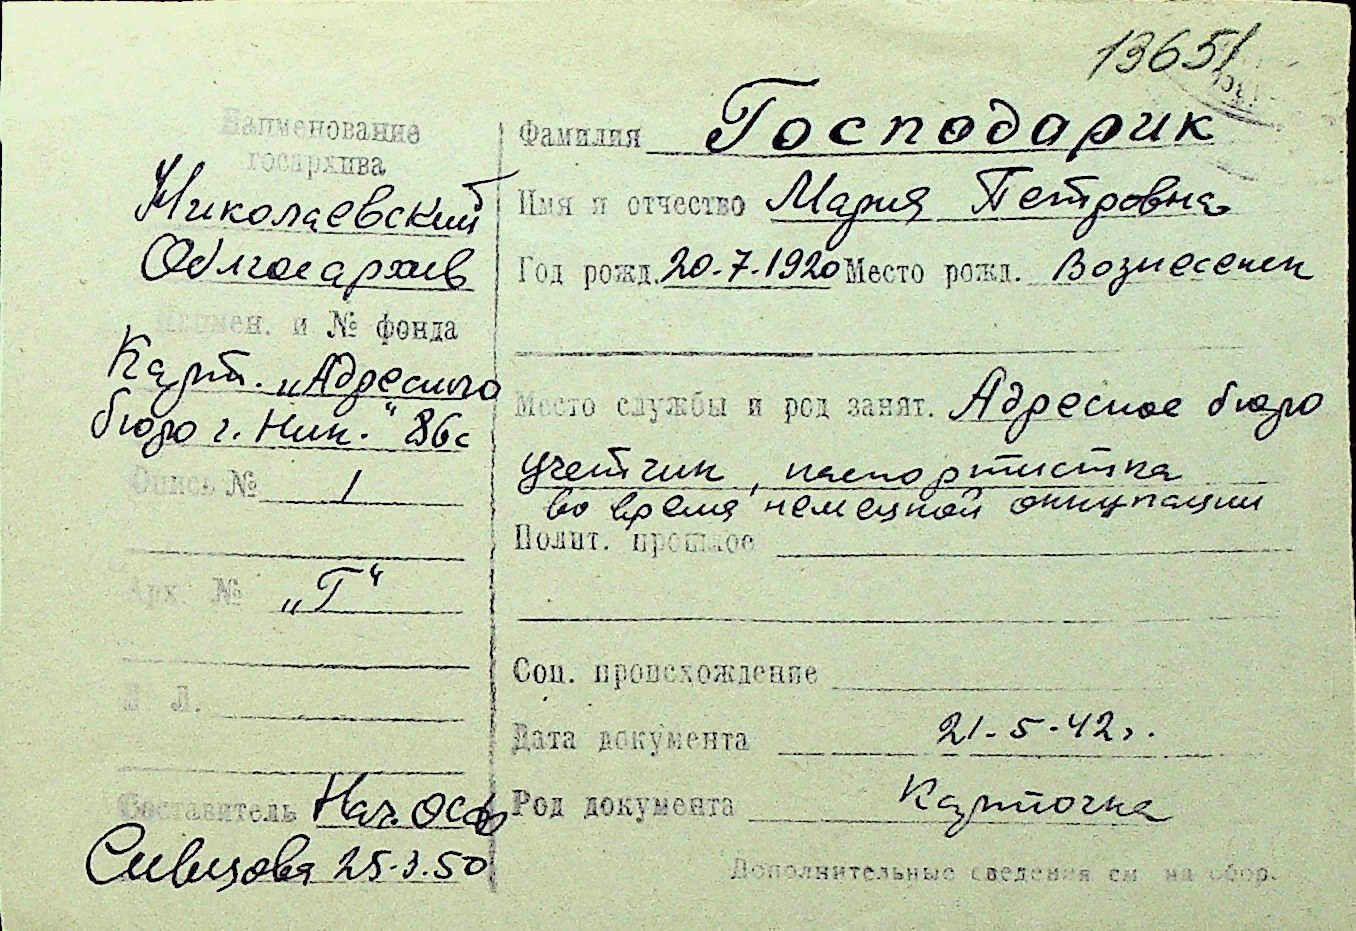 13651
Наименование
госархива
Николаевский
Облгосархив
Наимен. и № фонда
Карт. „Адресного
бюро г. Ник.“ 86с
Опись № 1
Арх. № „Г“
Л Л.
Составитель Нач. ОСФ
Сивцова 25.3.50
Фамилия Господарик
Имя и отчество Мария Петровна
Год рожд. 20.7.1920 Место рожд. Вознесенск
Место службы и род занят. Адресное бюро
учетчик, паспортистка
во время немецкой оккупации
Полит. прошлое
Соц. происхождение
Дата документа 21.5.42г.
Род документа Карточка
Дополнительные сведения см на обор.